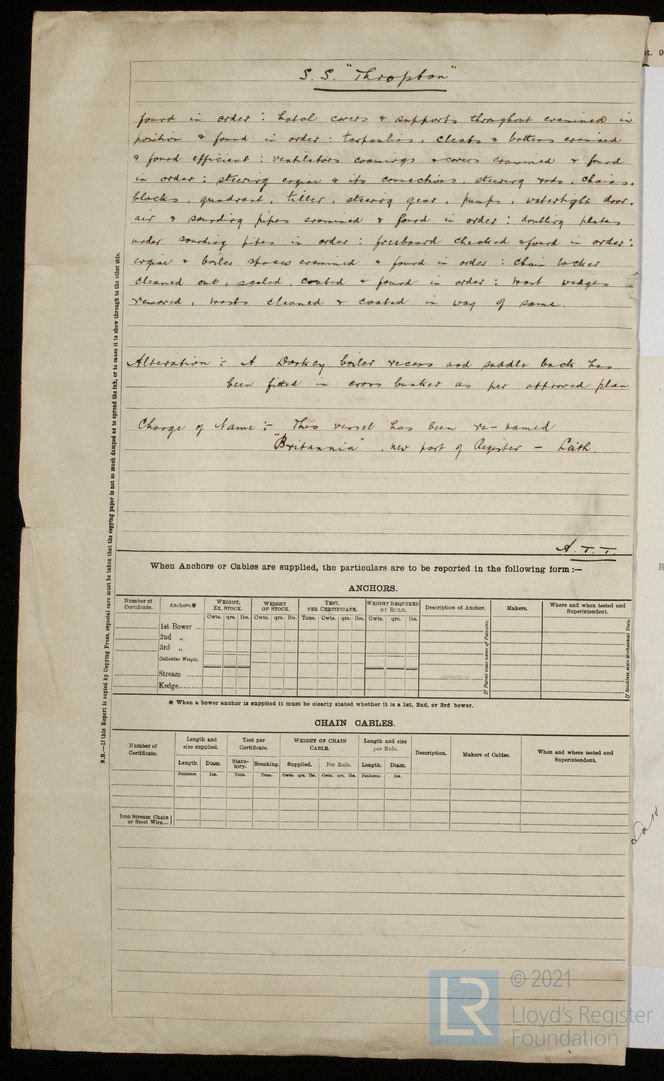 S.S. "Thropton"
found in order : hatch covers & supports throughout examined in
position & found in order : tarpaulins, cleats & battens examined
& found efficient : ventilators coamings & covers examined & found
in order : steering engine & its connections, steering rods, chains,
blocks, quadrant, tiller, steering gear, pumps, watertight door,
air & sounding pipes examined & found in order : doubling plates
under sounding pipes in order : freeboard checked & found in order :
engine & boiler spaces examined & found in order : chain locker
cleaned out, scaled, coated & found in order : mast wedges
removed, masts cleaned & coated in way of same.
Alteration :- A Donkey boiler recess and saddle back has
been fitted in cross bunker as per approved plan
Change of Name :- This vessel has been re-named
"Britannia", new port of Register - Leith.
A.T.T.
N.B.—If this Report is copied by Copying Press, especial care must be taken that the copying paper is not so much damped as to spread the ink, or to cause it to show through to the other side.
When Anchors or Cables are supplied, the particulars are to be reported in the following form :—
ANCHORS.
Number of Certificate. Anchors.* WEIGHT. EX. STOCK. WEIGHT OF STOCK. TEST. PER CERTIFICATE. WEIGHT REQUIRED BY RULE. Description of Anchor. Makers. Where and when tested and Superintendent.
Cwts. qrs. lbs. Cwts. qrs. lbs. Tons. Cwts. qrs. lbs. Cwts. qrs. lbs.
1st Bower ...
2nd „
3rd „
Collective Weight.
Stream ......
Kedge........
* When a bower anchor is supplied it must be clearly stated whether it is a 1st, 2nd, or 3rd bower.
CHAIN CABLES.
Number of Certificate. Length and size supplied. Test per Certificate. WEIGHT OF CHAIN CABLE. Length and size per Rule. Description. Makers of Cables. When and where tested and Superintendent.
Length. Diam. Statutory. Breaking. Supplied. Per Rule. Length. Diam.
Fathoms. Ins. Tons. Tons. Cwts. qrs. lbs. Cwts. qrs. lbs. Fathoms. Ins.
Iron Stream Chain
or Steel Wire...
LR
© 2021
Lloyd's Register
Foundation